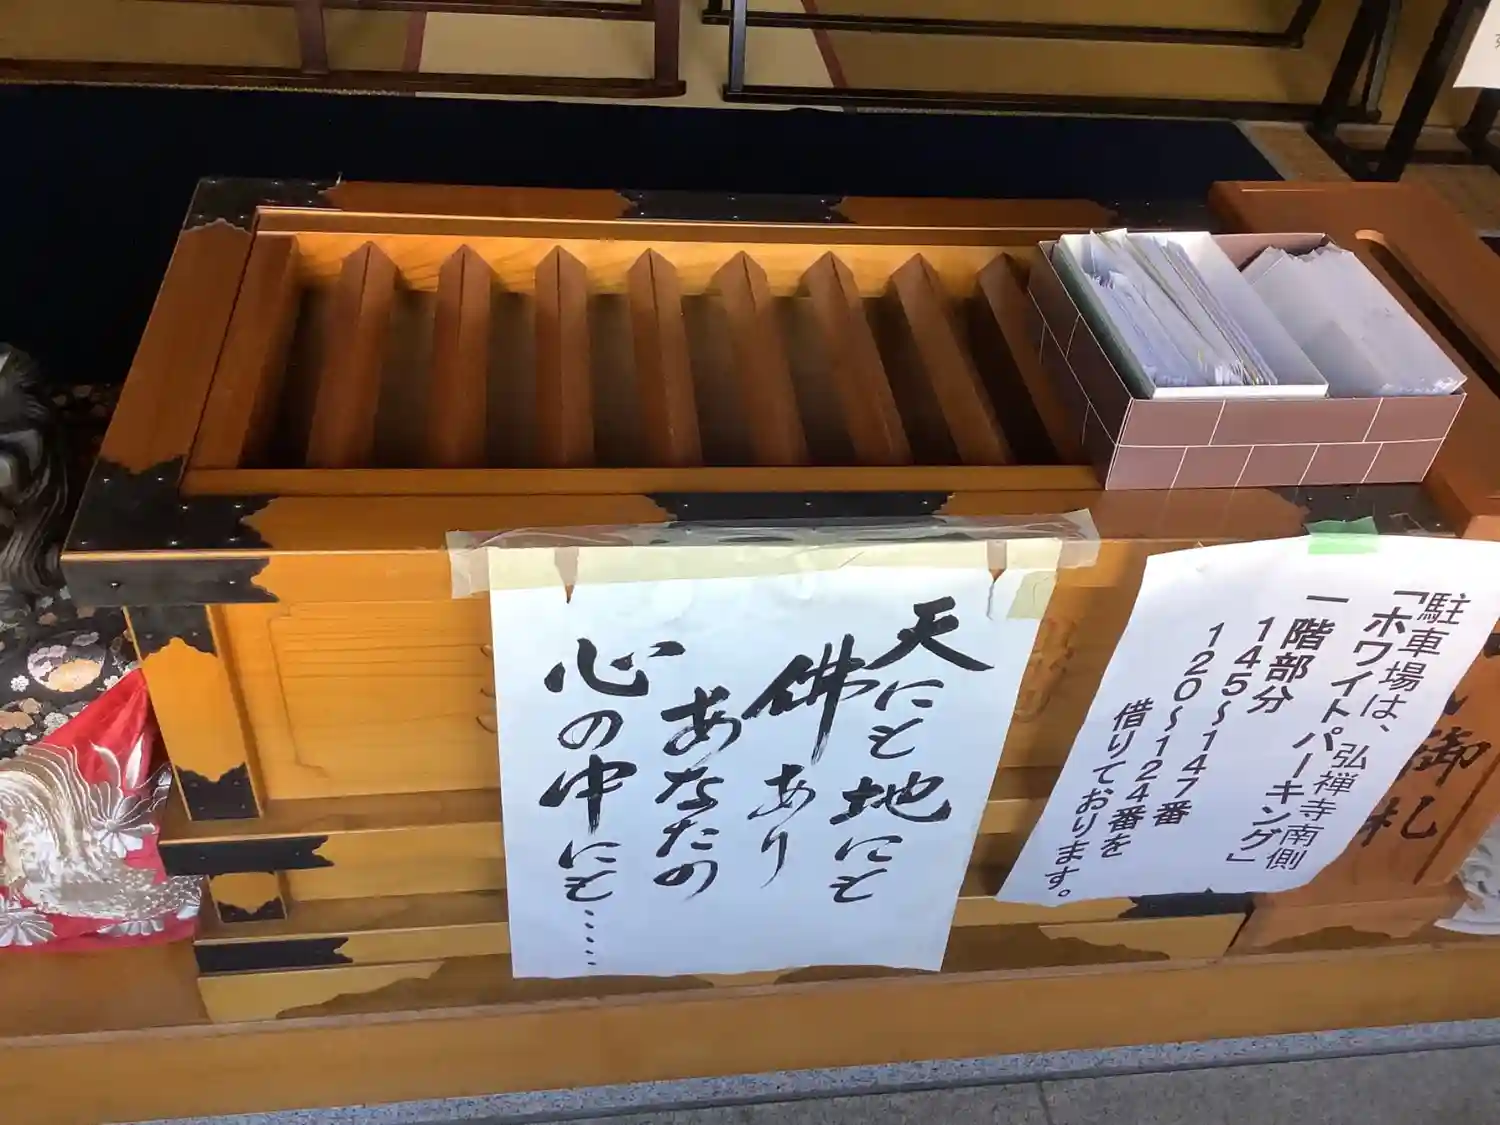 天にも地にも
佛あり
あなたの
心の中にも……
駐車場は、弘禅寺南側
「ホワイトパーキング」
一階部分
145〜147番
120〜124番を
借りております。
御札